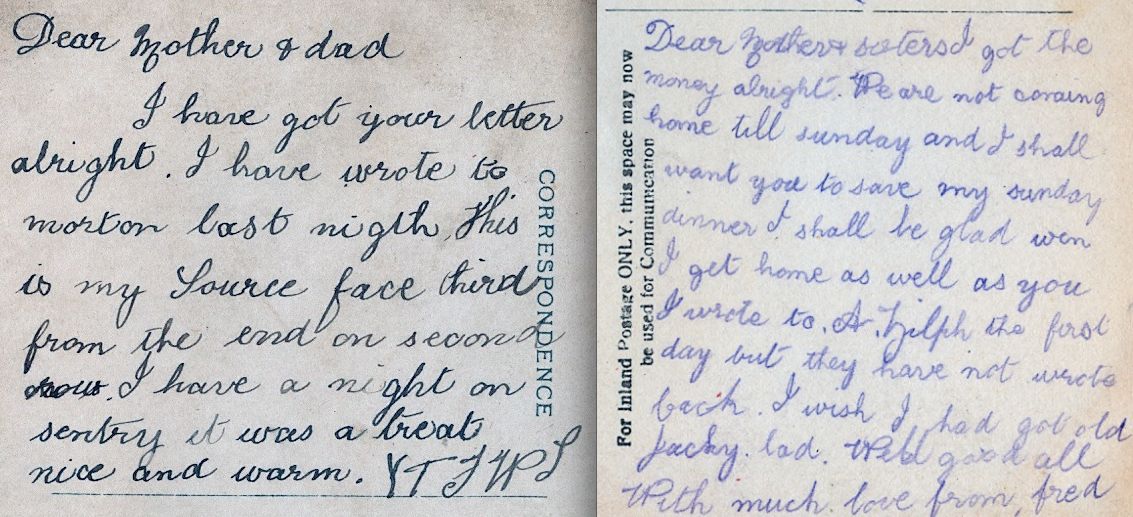 Dear Mother & dad
I have got your letter
alright. I have wrote to
morton last nigth, this
is my Source face third
from the end on second
rous. I have a night on
sentry it was a treat
nice and warm. YTFWPS
CORRESPONDENCE
For Inland Postage ONLY, this space may now
be used for Communication
Dear Mother & sisters I got the
money alright. We are not comeing
home till sunday and I shall
want you to save my sunday
dinner I shall be glad wen
I get home as well as you
I wrote to. A. the first
day but they have not wrote
back. I wish I had got old
Jacky. lad. Well good all
With much. love from, fred